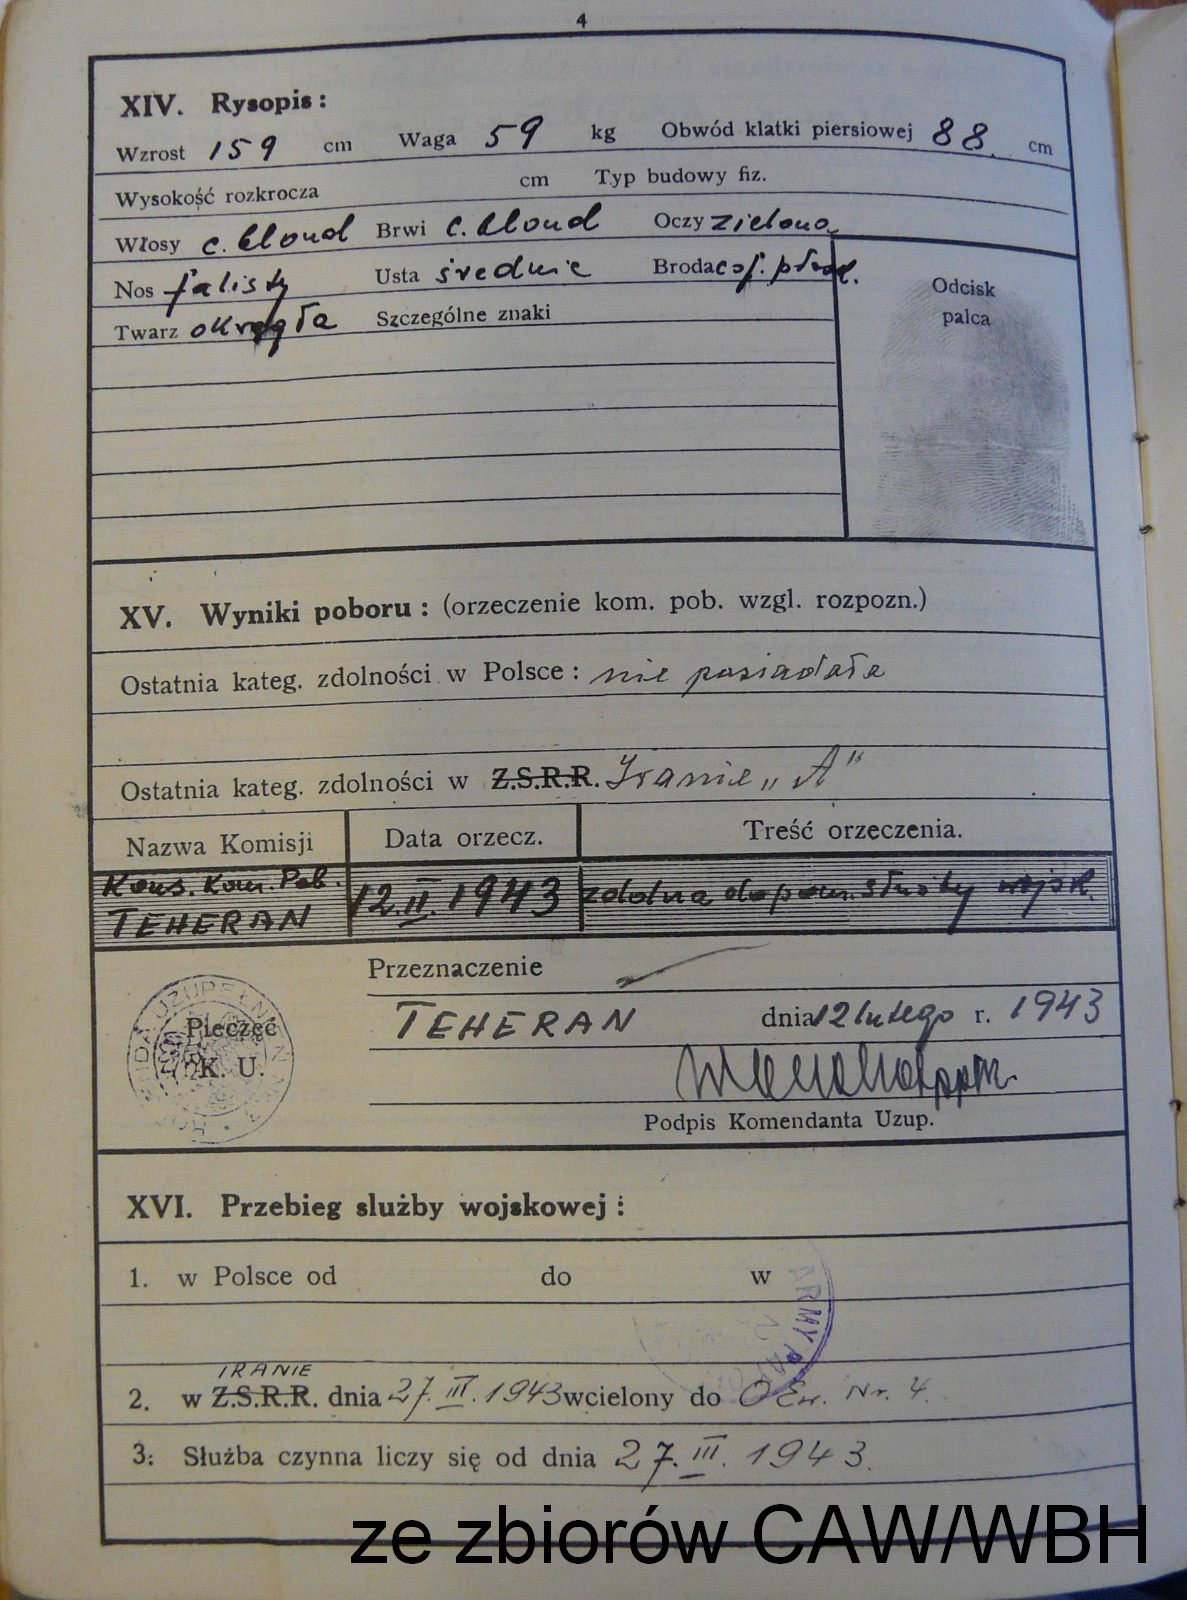 4
XIV. Rysopis:
Wzrost 159 cm Waga 59 kg Obwód klatki piersiowej 88. cm
Wysokość rozkrocza cm Typ budowy fiz.
Włosy c. blond Brwi c. blond Oczy zielone
Nos falisty Usta średnie Broda cof.
Twarz okrągła Szczególne znaki
Odcisk
palca
XV. Wyniki poboru: (orzeczenie kom. pob. wzgl. rozpozn.)
Ostatnia kateg. zdolności w Polsce: nie posiadała
Ostatnia kateg. zdolności w Z.S.R.R. Iranie „A"
Nazwa Komisji Data orzecz. Treść orzeczenia.
Kons. Kom. Pob.
TEHERAN 12.II.1943 zdolna do pom. służby wojsk.
Przeznaczenie
Pieczęć
K. U.
TEHERAN dnia 12 lutego r. 1943
Podpis Komendanta Uzup.
XVI. Przebieg służby wojskowej:
1. w Polsce od do w
ARMY
IRANIE
2. w Z.S.R.R. dnia 27.III.1943 wcielony do O Ew. Nr. 4.
3: Służba czynna liczy się od dnia 27.III.1943.
ze zbiorów CAW/WBH